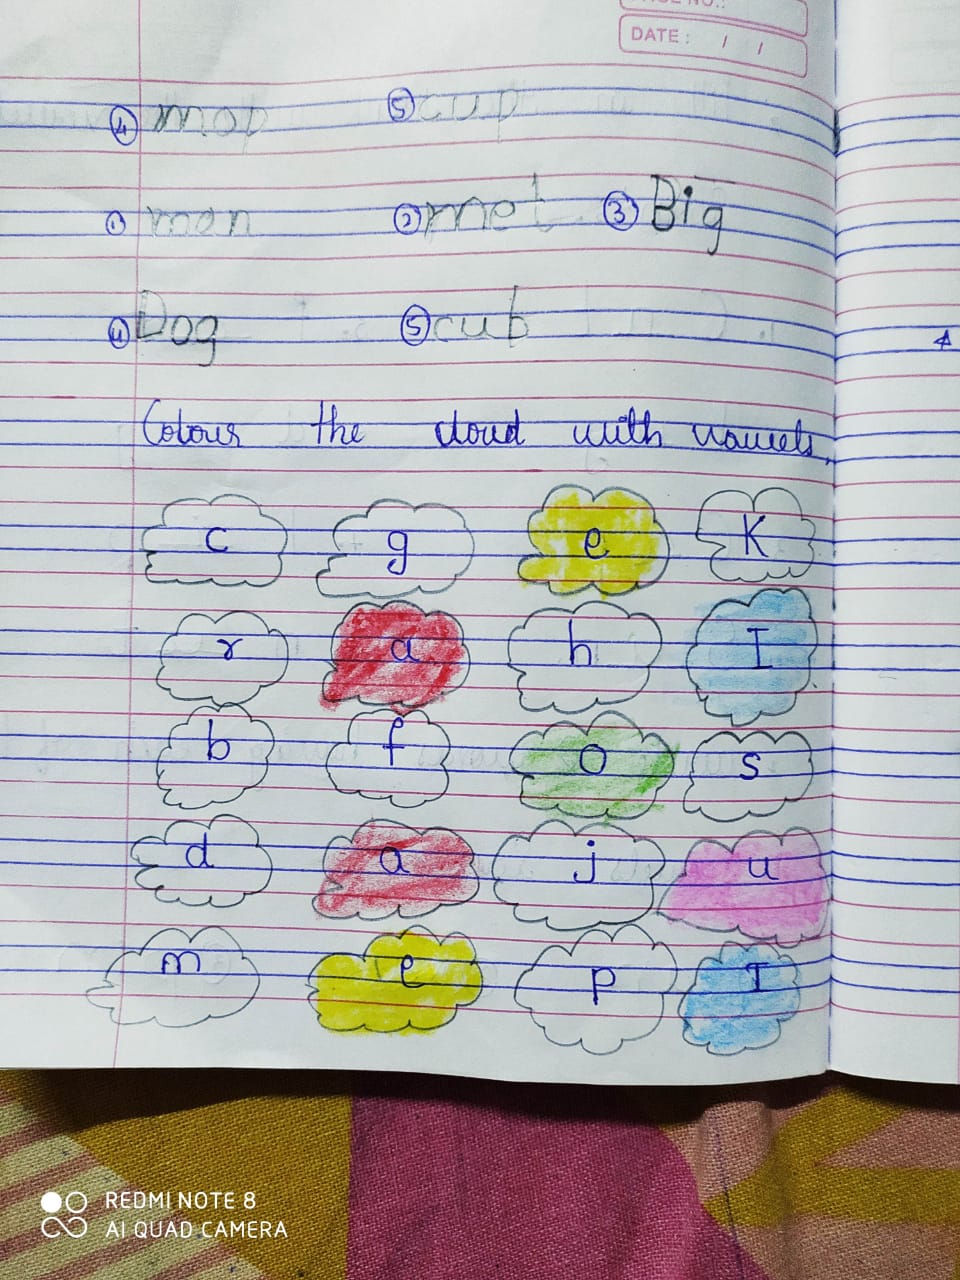 PAGE NO.:
DATE: / /
④ mop ⑤ cup
① man ② met ③ Big
④ Dog ⑤ cub
Colour the cloud with vowels.
c g e K
r a h I
b f o s
d a j u
m e p I
REDMI NOTE 8
AI QUAD CAMERA